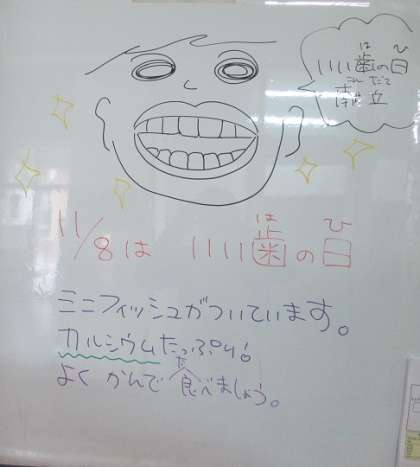 は ひ
いい歯の日
こん だて
献立
は ひ
11/8は いい歯の日
ミニフィッシュがついています。
カルシウムたっぷり!
た
よく かんで 食べましょう。